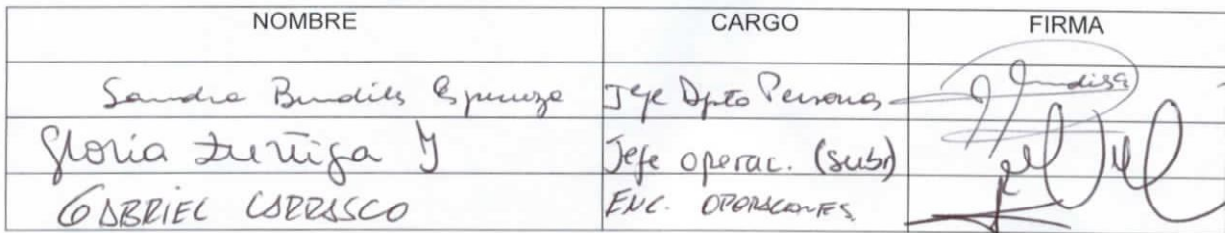 NOMBRE CARGO FIRMA
Sandra Bundiles Espinoza Jefe Dpto Personas
Gloria Zuñiga J Jefe operac. (subr)
GABRIEL CARRASCO ENC. OPERACIONES